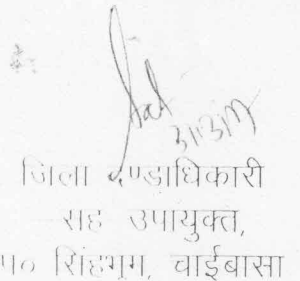 जिला दण्डाधिकारी
सह उपायुक्त,
प० सिंहभूम, चाईबासा